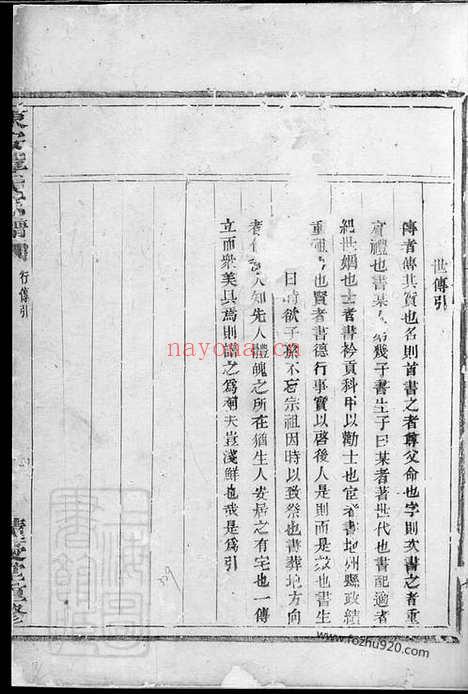 世傳引
傳者傳其實也名則首書之者尊父命也字則次書之者重
賓禮也書某 第幾子書生子曰某者著世代也書配適者
紀世婣也士者書衿貢科甲以勸士也宦者書地州縣政績
重 也賢者書德行事實以啓後人是則而是 也書生
日 欲子孫不忘宗祖因時以致祭也書葬地方向
者 人知先人體魄之所在猶生人安居之有宅也一傳
立而衆美具焉則譜之爲 夫豈淺鮮也哉是爲引
東安 氏宗譜
行傳引
nayona.cn
www.fozhu920.com